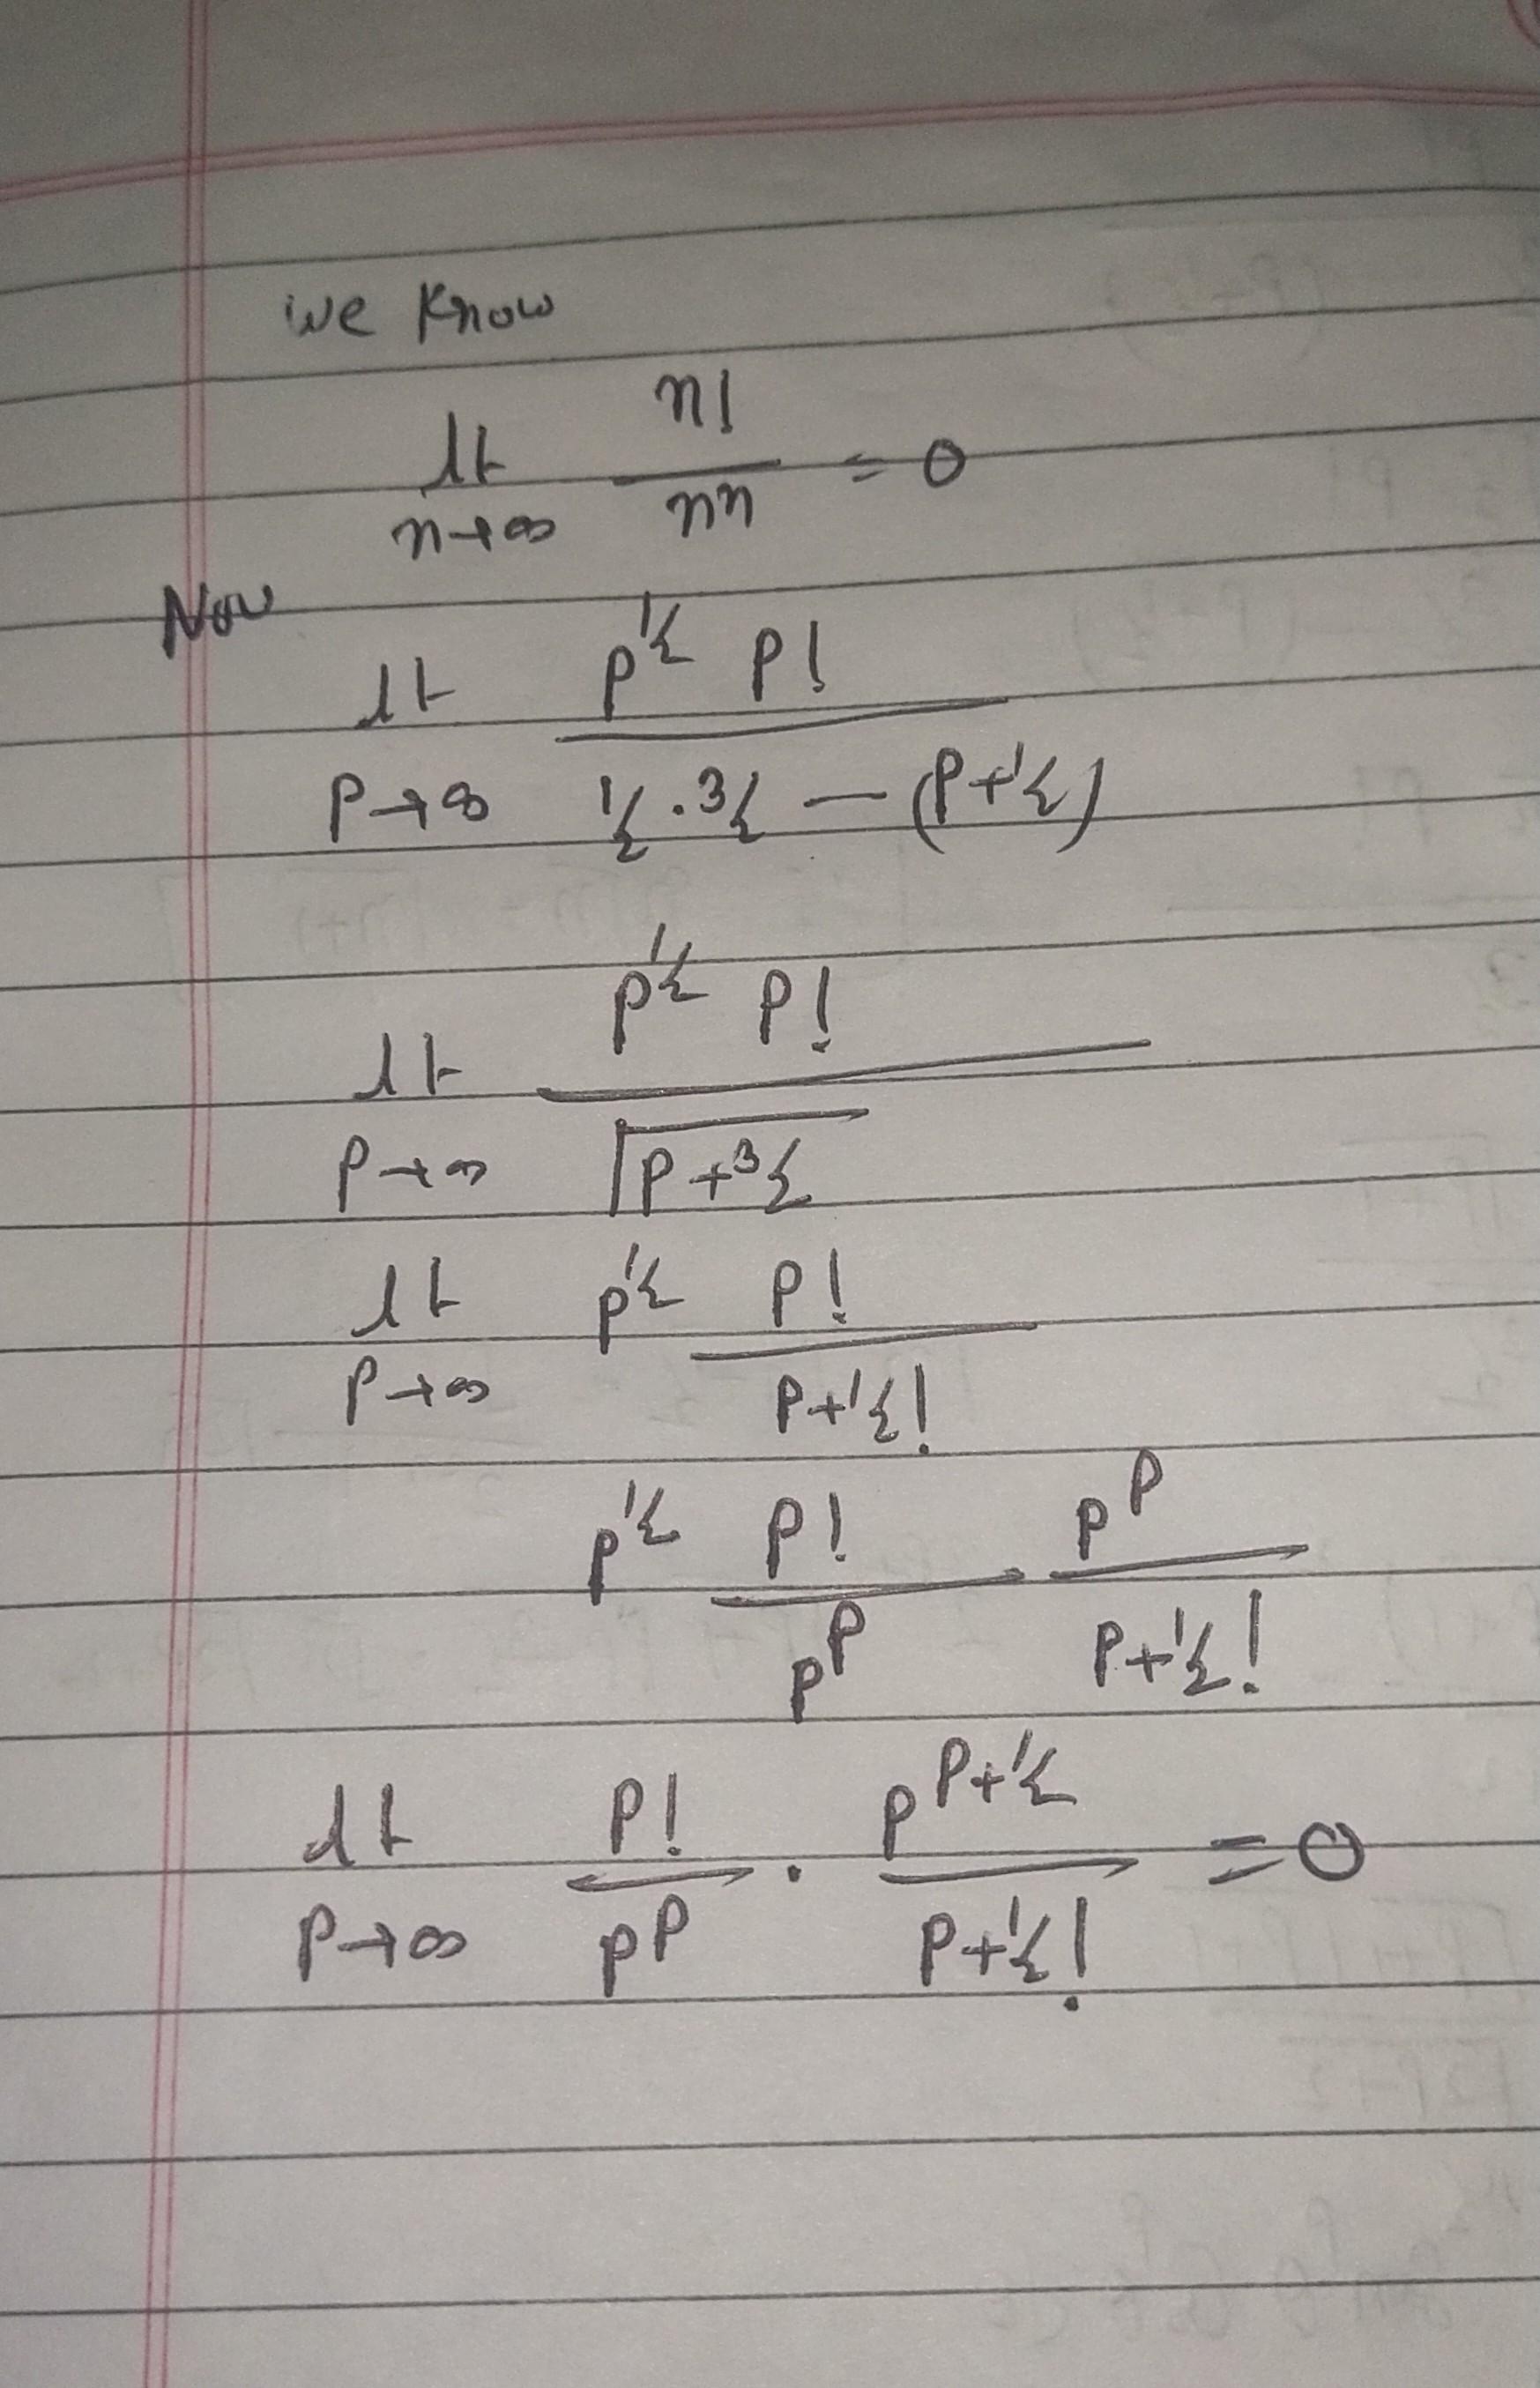 we know
lt n→∞ n!/nⁿ = 0
Now
lt p→∞ p^½ p! / ½·3/2 — (p+½)
lt p→∞ p^½ p! / Γp+3/2
lt p→∞ p^½ p!/p+½!
p^½ p!/p^p · p^p/p+½!
lt p→∞ p!/p^p · p^p+½/p+½! = 0